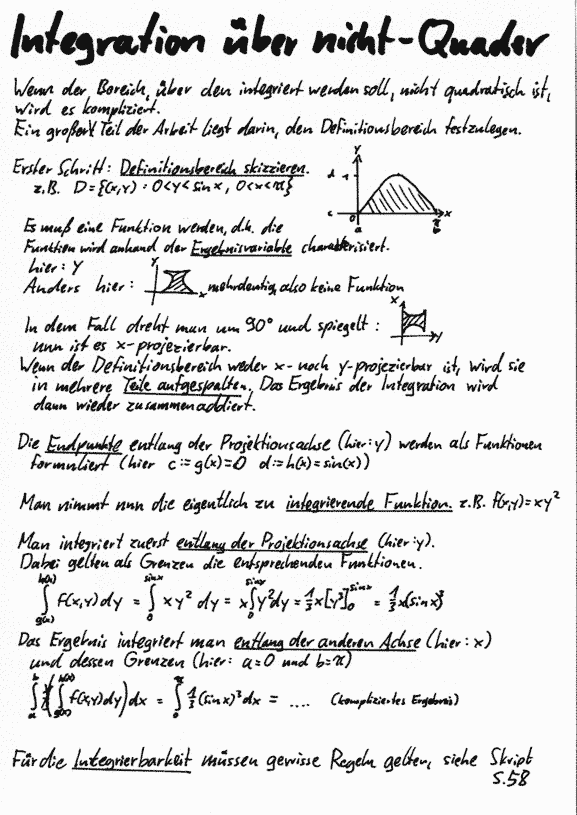 Integration über nicht-Quader
Wenn der Bereich, über den integriert werden soll, nicht quadratisch ist,
wird es kompliziert.
Ein großer Teil der Arbeit liegt darin, den Definitionsbereich festzulegen.
Erster Schritt: Definitionsbereich skizzieren.
z.B. D={(x,y) : 0<y<sin x, 0<x<π}
y
d 1
c 0 π x
a b
Es muß eine Funktion werden, d.h. die
Funktion wird anhand der Ergebnisvariable charakterisiert.
hier: y
Anders hier: y x mehrdeutig, also keine Funktion
In dem Fall dreht man um 90° und spiegelt: x y
nun ist es x-projezierbar.
Wenn der Definitionsbereich weder x- noch y-projezierbar ist, wird sie
in mehrere Teile aufgespalten. Das Ergebnis der Integration wird
dann wieder zusammenaddiert.
Die Endpunkte entlang der Projektionsachse (hier: y) werden als Funktionen
formuliert (hier c:=g(x)=0 d:=h(x)=sin(x))
Man nimmt nun die eigentlich zu integrierende Funktion. z.B. f(x,y)=xy²
Man integriert zuerst entlang der Projektionsachse (hier: y).
Dabei gelten als Grenzen die entsprechenden Funktionen.
∫_{g(x)}^{h(x)} f(x,y) dy = ∫_0^{sin x} x y² dy = x ∫_0^{sin x} y² dy = 1/3 x [y³]_0^{sin x} = 1/3 x (sin x)³
Das Ergebnis integriert man entlang der anderen Achse (hier: x)
und dessen Grenzen (hier: a=0 und b=π)
∫_a^b (∫_{g(x)}^{h(x)} f(x,y) dy) dx = ∫_0^π 1/3 (sin x)³ dx = .... (kompliziertes Ergebnis)
Für die Integrierbarkeit müssen gewisse Regeln gelten, siehe Skript
S.58